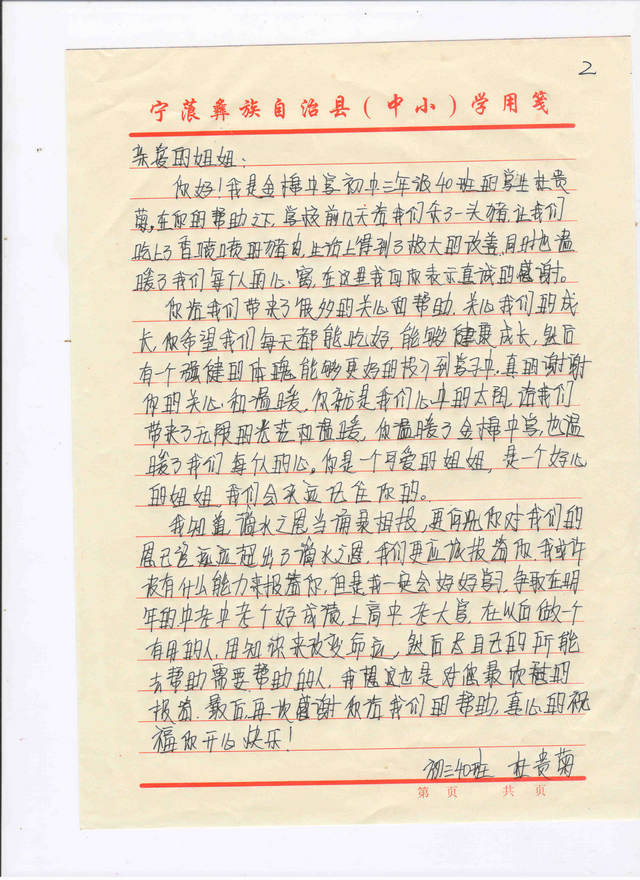 2
宁蒗彝族自治县(中小)学用笺
亲爱的姐姐:
你好!我是金棉中学初中三年级40班的学生杜贵
菊,在你的帮助之下,学校前几天为我们杀了一头猪,让我们
吃上了香喷喷的猪肉,生活上得到了极大的改善,同时也温
暖了我们每个人的心窝,在这里我向你表示真诚的感谢。
你为我们带来了很多的关心和帮助,关心我们的成
长,你希望我们每天都能吃好,能够健康成长,然后
有一个强健的体魄,能够更好的投入到学习中,真的谢谢
你的关心和温暖,你就是我们心中的太阳,给我们
带来了无限的光芒和温暖,你温暖了金棉中学,也温
暖了我们每个人的心。你是一个可爱的姐姐,是一个好心
的姐姐,我们会永远记住你的。
我知道,滴水之恩当涌泉相报,更何况你对我们的
恩已经远远超出了滴水之恩,我们更应该报答你,我或许
没有什么能力来报答你,但是我一定会好好学习,争取在明
年的中考中考个好成绩,上高中,考大学,在以后做一个
有用的人,用知识来改变命运,然后尽自己的所能
去帮助需要帮助的人,我想这也是对您最欣慰的
报答。最后,再一次感谢你为我们的帮助,真心的祝
福你开心快乐!
初三40班 杜贵菊
第 页 共 页